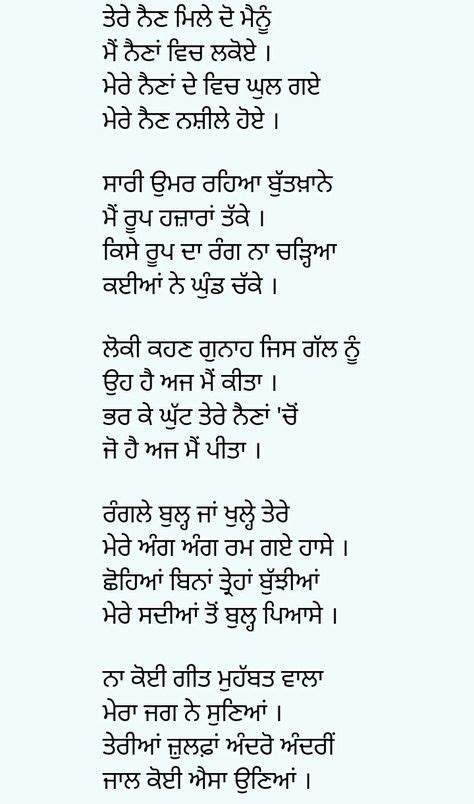 ਤੇਰੇ ਨੈਣ ਮਿਲੇ ਦੋ ਮੈਨੂੰ
ਮੈਂ ਨੈਣਾਂ ਵਿਚ ਲਕੋਏ ।
ਮੇਰੇ ਨੈਣਾਂ ਦੇ ਵਿਚ ਘੁਲ ਗਏ
ਮੇਰੇ ਨੈਣ ਨਸ਼ੀਲੇ ਹੋਏ ।
ਸਾਰੀ ਉਮਰ ਰਹਿਆ ਬੁੱਤਖ਼ਾਨੇ
ਮੈਂ ਰੂਪ ਹਜ਼ਾਰਾਂ ਤੱਕੇ ।
ਕਿਸੇ ਰੂਪ ਦਾ ਰੰਗ ਨਾ ਚੜ੍ਹਿਆ
ਕਈਆਂ ਨੇ ਘੁੰਡ ਚੱਕੇ ।
ਲੋਕੀ ਕਹਣ ਗੁਨਾਹ ਜਿਸ ਗੱਲ ਨੂੰ
ਉਹ ਹੈ ਅਜ ਮੈਂ ਕੀਤਾ ।
ਭਰ ਕੇ ਘੁੱਟ ਤੇਰੇ ਨੈਣਾਂ 'ਚੋਂ
ਜੋ ਹੈ ਅਜ ਮੈਂ ਪੀਤਾ ।
ਰੰਗਲੇ ਬੁਲ੍ਹ ਜਾਂ ਖੁਲ੍ਹੇ ਤੇਰੇ
ਮੇਰੇ ਅੰਗ ਅੰਗ ਰਮ ਗਏ ਹਾਸੇ ।
ਛੋਹਿਆਂ ਬਿਨਾਂ ਤ੍ਰੇਹਾਂ ਬੁੱਝੀਆਂ
ਮੇਰੇ ਸਦੀਆਂ ਤੋਂ ਬੁਲ੍ਹ ਪਿਆਸੇ ।
ਨਾ ਕੋਈ ਗੀਤ ਮੁਹੱਬਤ ਵਾਲਾ
ਮੇਰਾ ਜਗ ਨੇ ਸੁਣਿਆਂ ।
ਤੇਰੀਆਂ ਜ਼ੁਲਫ਼ਾਂ ਅੰਦਰੋ ਅੰਦਰੀਂ
ਜਾਲ ਕੋਈ ਐਸਾ ਉਣਿਆਂ ।